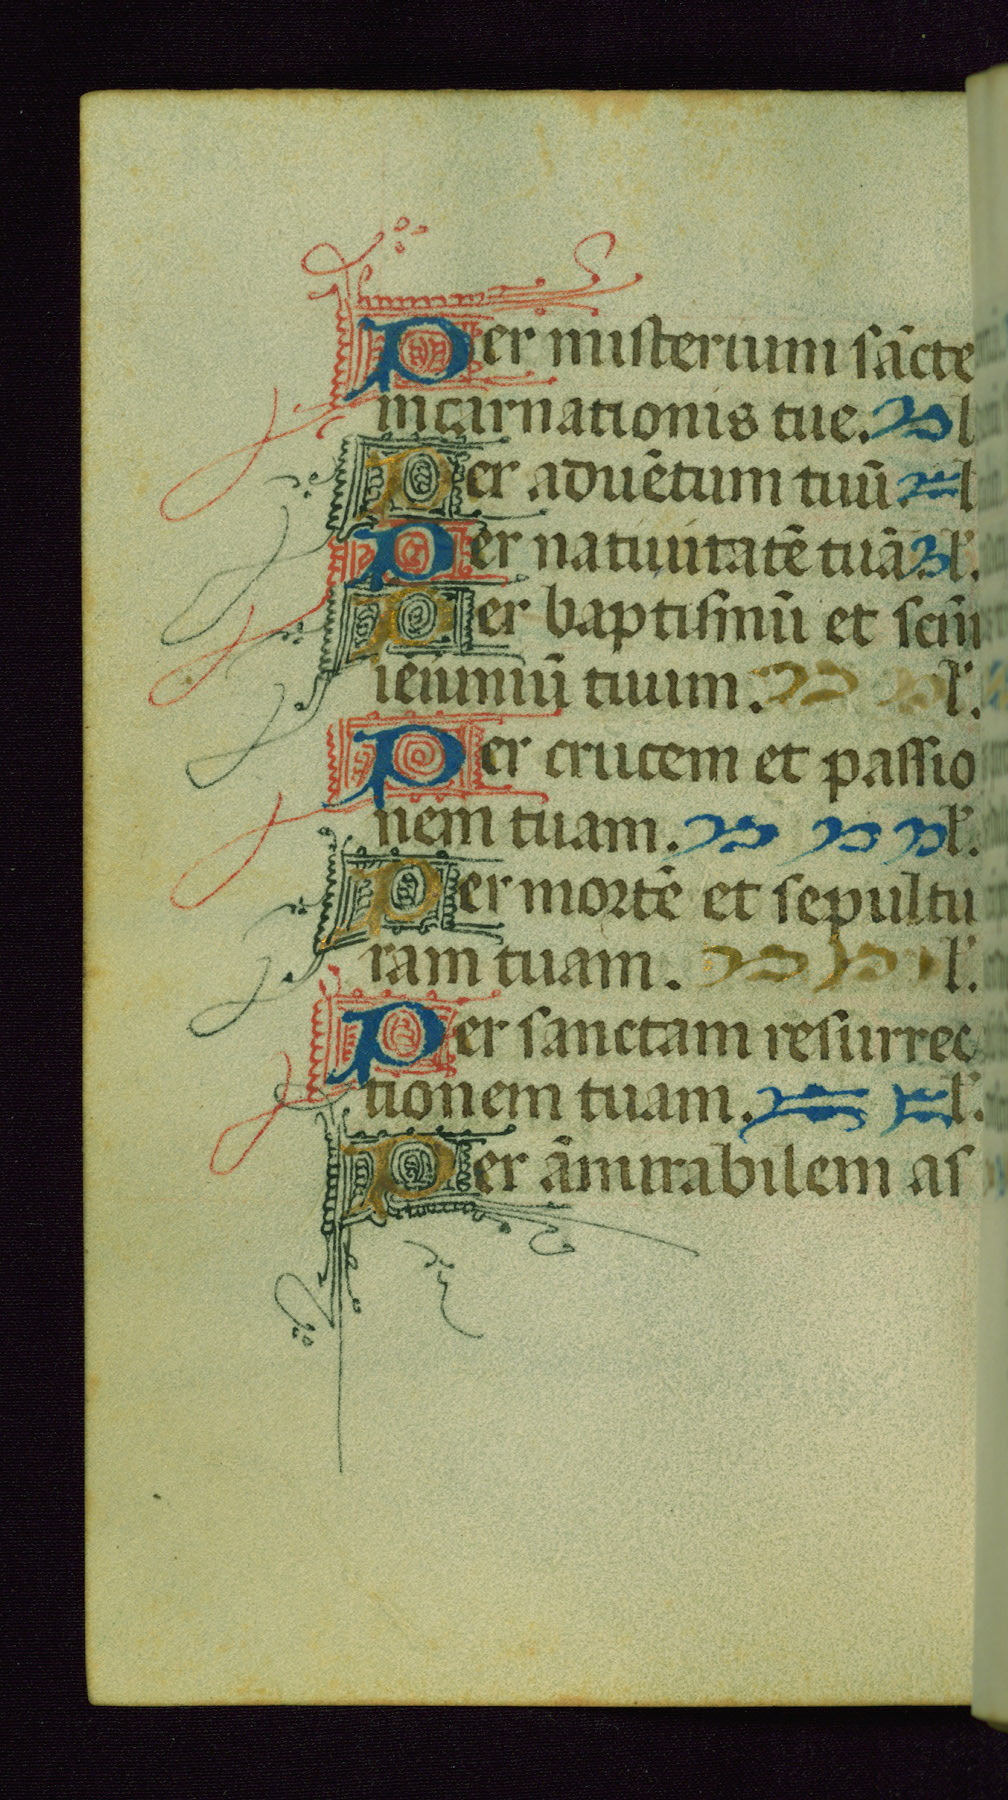 Per misterium sācte
incarnationis tue. l
Per aduētum tuū l
Per natiuitatē tuā l.
Per baptismū et scm̄
ieiuniū tuum. l.
Per crucem et passio
nem tuam. l.
Per mortē et sepultu
ram tuam. l.
Per sanctam resurrec
tionem tuam. l.
Per āmirabilem as